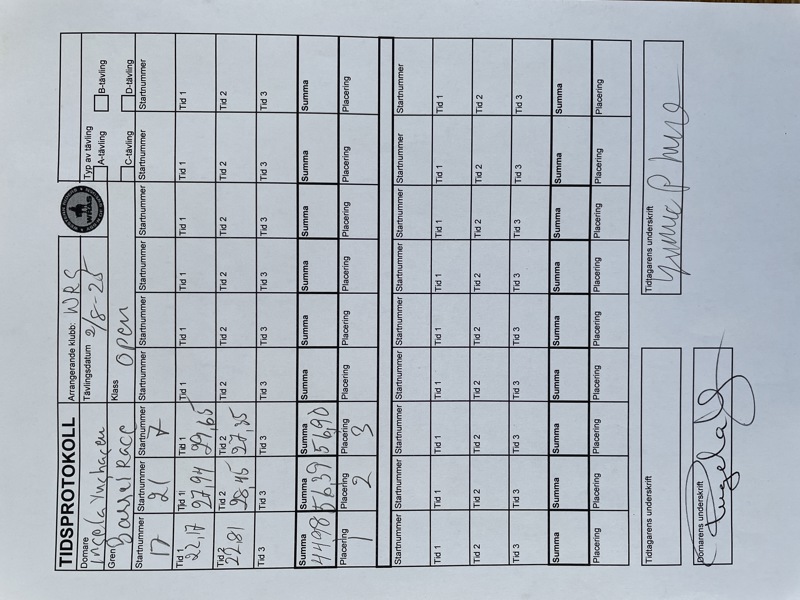 TIDSPROTOKOLL
Arrangerande klubb: WRS
Domare Ingela
Tävlingsdatum 2/8-25
Typ av tävling
A-tävling B-tävling
C-tävling D-tävling
WRAS
Gren Barrel Race
Klass Open
Startnummer 17 Startnummer 21 Startnummer 7 Startnummer Startnummer Startnummer Startnummer Startnummer Startnummer
Tid 1 22,17 Tid 1 27,94 Tid 1 29,65 Tid 1 Tid 1 Tid 1 Tid 1 Tid 1 Tid 1
Tid 2 22,81 Tid 2 28,45 Tid 2 27,25 Tid 2 Tid 2 Tid 2 Tid 2 Tid 2 Tid 2
Tid 3 Tid 3 Tid 3 Tid 3 Tid 3 Tid 3 Tid 3 Tid 3 Tid 3
Summa 44,98 Summa 56,39 Summa 56,90 Summa Summa Summa Summa Summa Summa
Placering 1 Placering 2 Placering 3 Placering Placering Placering Placering Placering Placering
Startnummer Startnummer Startnummer Startnummer Startnummer Startnummer Startnummer Startnummer Startnummer
Tid 1 Tid 1 Tid 1 Tid 1 Tid 1 Tid 1 Tid 1 Tid 1 Tid 1
Tid 2 Tid 2 Tid 2 Tid 2 Tid 2 Tid 2 Tid 2 Tid 2 Tid 2
Tid 3 Tid 3 Tid 3 Tid 3 Tid 3 Tid 3 Tid 3 Tid 3 Tid 3
Summa Summa Summa Summa Summa Summa Summa Summa Summa
Placering Placering Placering Placering Placering Placering Placering Placering Placering
Tidtagarens underskrift
Tidtagarens underskrift
Domarens underskrift